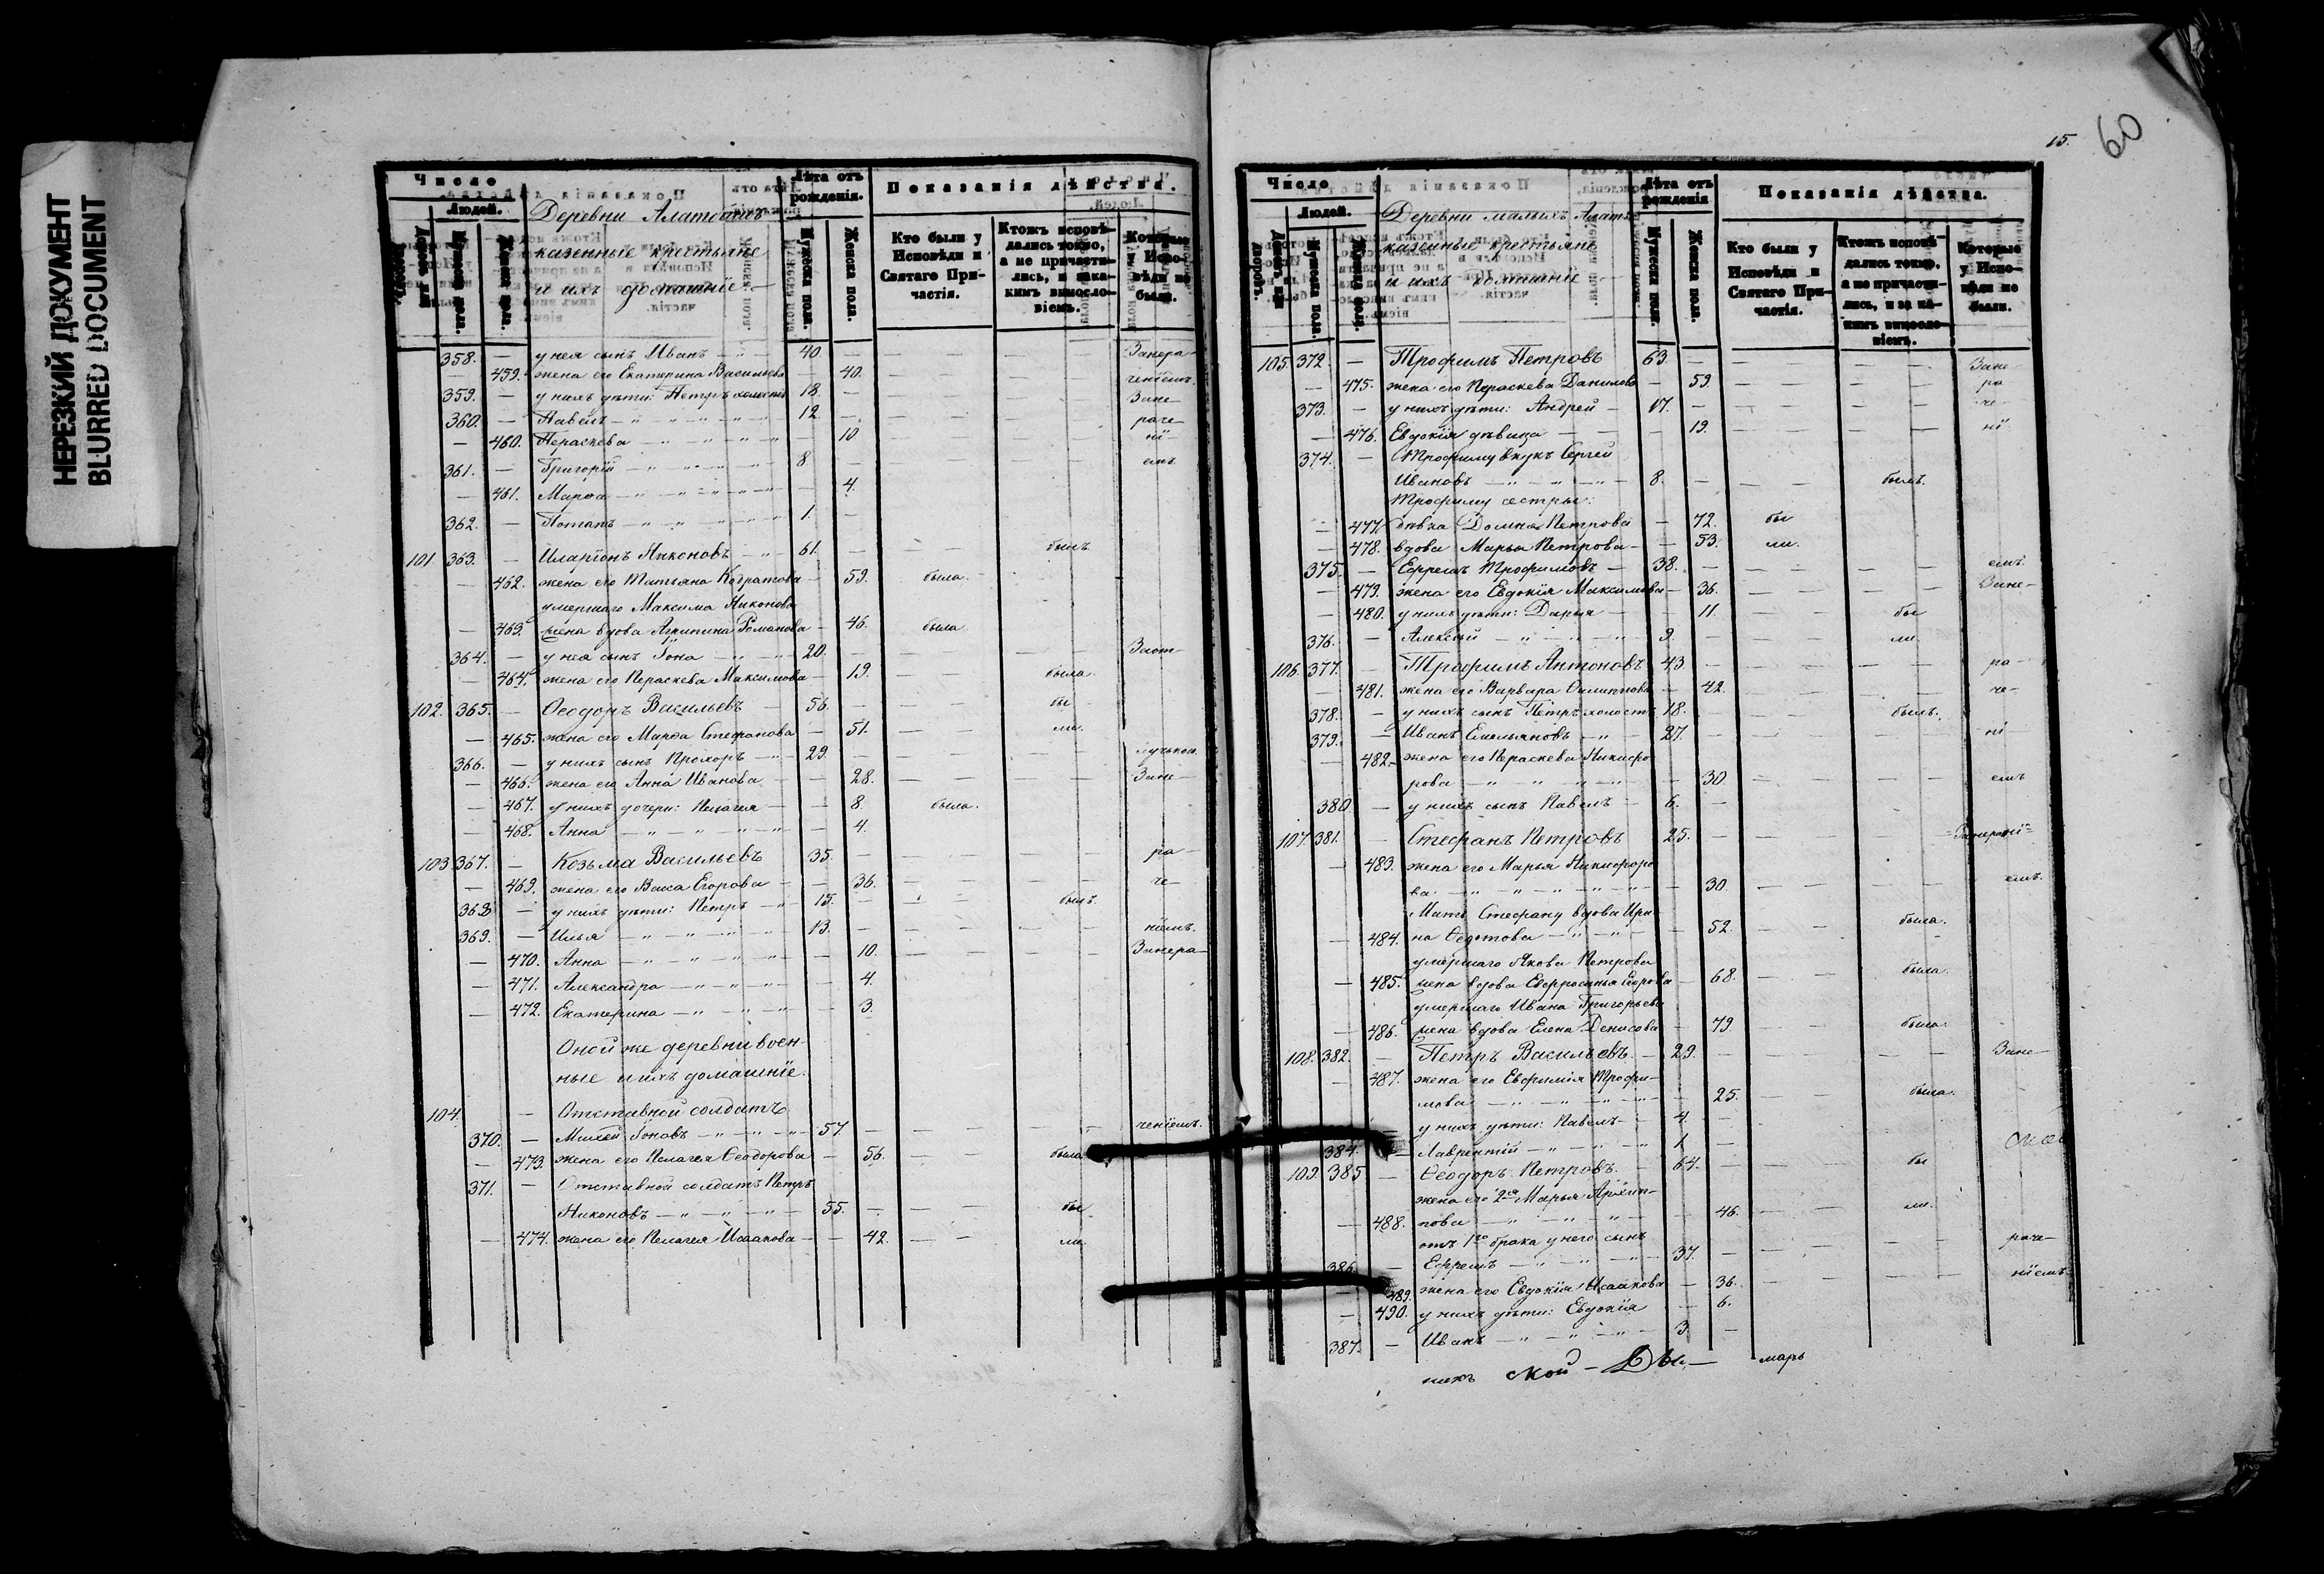 НЕРЕЗКИЙ ДОКУМЕНТ
BLURRED DOCUMENT
Число
Людей.
Мужеска пола.
Женска пола.
Деревни
казенные крестьяне
и ихъ домашніе.
Лѣта отъ рожденія.
Мужеска пола.
Женска пола.
Показанія дѣйства.
Кто были у Исповѣди и Святаго Причастія.
Ктожъ исповѣдались токмо, а не причастились, и за какимъ винословіемъ.
Которые у Исповѣди не были.
358. — у нея сынъ Иванъ — 40. — Занера-
459. жена его Екатерина Васильева — 40. — ченіемъ.
359. — у нихъ дѣти: Петръ холостъ 18. — Зане-
360. — Павелъ — 12. — раче-
— 460. Пераскева — 10 — ні-
361. — Григорій — 8 — емъ.
— 461. Марѳа — 4.
362. — Потапъ — 1. —
101. 363. — Иларіонъ Никоновъ — 61. — былъ.
— 462. жена его Татьяна — 59. была.
умершаго Максима Никонова
— 463. жена вдова Агрипина Романова — 46. была.
364. — у нея сынъ Іона — 20. — Заот-
— 464. жена его Пераскева Максимова — 19. — была.
102. 365. — Ѳеодоръ Васильевъ — 56. — бы
— 465. жена его Марѳа Стефанова — 51. — ли.
366. — у нихъ сынъ Прохоръ — 29. — лучкою.
— 466. жена его Анна Иванова — 28. — Зане-
— 467. у нихъ дочери: Пелагея — 8. была.
— 468. Анна — 4.
103. 367. — Козьма Васильевъ 35. — ра-
— 469. жена его Васса Егорова — 36. — че-
368 — у нихъ дѣти: Петръ — 15. — былъ.
369. — Илья — 13. — ніемъ.
— 470. Анна — 10. — Занера-
— 471. Александра — 4.
— 472. Екатерина — 3.
Оной же деревни воен-
ные и ихъ домашніе.
104. — Отставной солдатъ
370. — Михей Іоновъ — 57. — ченіемъ.
— 473. жена его Пелагея Ѳеодорова — 56. — была.
371. — Отставной солдатъ Петръ
Никоновъ — 55. — бы
— 474. жена его Пелагея Исаакова — 42. — ли.
15.
60
Число
Людей.
Мужеска пола.
Женска пола.
Деревни малыхъ
казенные крестьяне
и ихъ домашніе
Лѣта отъ рожденія
Мужеска пола.
Женска пола.
Показанія дѣйства.
Кто были у Исповѣди и Святаго Причастія.
Ктожъ исповѣдались токмо, а не причастились, и за какимъ винословіемъ.
Которые у Исповѣди не были.
105. 372. — Трофимъ Петровъ 63. — Зане
— 475. жена его Пераскева Данилова — 59. — ра
373. — у нихъ дѣти: Андрей — 17. — че-
— 476. Евдокія дѣвица — 19. — ні
374. — Трофиму внукъ Сергей
Ивановъ — 8. — былъ.
Трофиму сестры:
— 477. дѣвка Домна Петрова — 72. бы
— 478. вдова Марья Петрова — 53. ли.
375. — Ефремъ Трофимовъ — 38. — емъ.
— 479. жена его Евдокія Максимова — 36. — Зане-
— 480. у нихъ дѣти: Дарья — 11. — бы
376. — Алексѣй — 9. — ли.
106. 377. — Трофимъ Антоновъ 43. — ра-
— 481. жена его Варвара Филиппова — 42. — че-
378. — у нихъ сынъ Петръ холостъ 18. — былъ.
379. — Иванъ Емельяновъ — 27. — ні
482. жена его Пераскева Никифо
рова — 30. — емъ
380 — у нихъ сынъ Павелъ — 6. —
107. 381. — Стефанъ Петровъ 25. — Занерачі=
— 483. жена его Марья Никифоро
ва — 30. — емъ.
Мать Стефану вдова Ири-
— 484. на Ѳедотова — 52. — была.
умершаго Якова Петрова
— 485. жена вдова Евфросинья Егорова — 68. — была.
умершаго Ивана Григорьева
— 486. жена вдова Елена Денисова — 79. — была.
108. 382. — Петръ Васильевъ — 29. — Зане-
— 487. жена его Евфимія Трофи-
мова — 25. — была.
у нихъ дѣти: Павелъ — 4. —
384. — Лаврентій — 1 —
109. 385 — Ѳеодоръ Петровъ — 64. — бы
жена его 2я Марья Архип-
— 488. пова — 46. — ли.
отъ 1го брака у него сынъ
386. — Ефремъ — 37. — раче-
— 489. жена его Евдокія Исаакова — 36. — ніемъ.
— 490. у нихъ дѣти: Евдокія — 6.
387. — Иванъ — 3. —